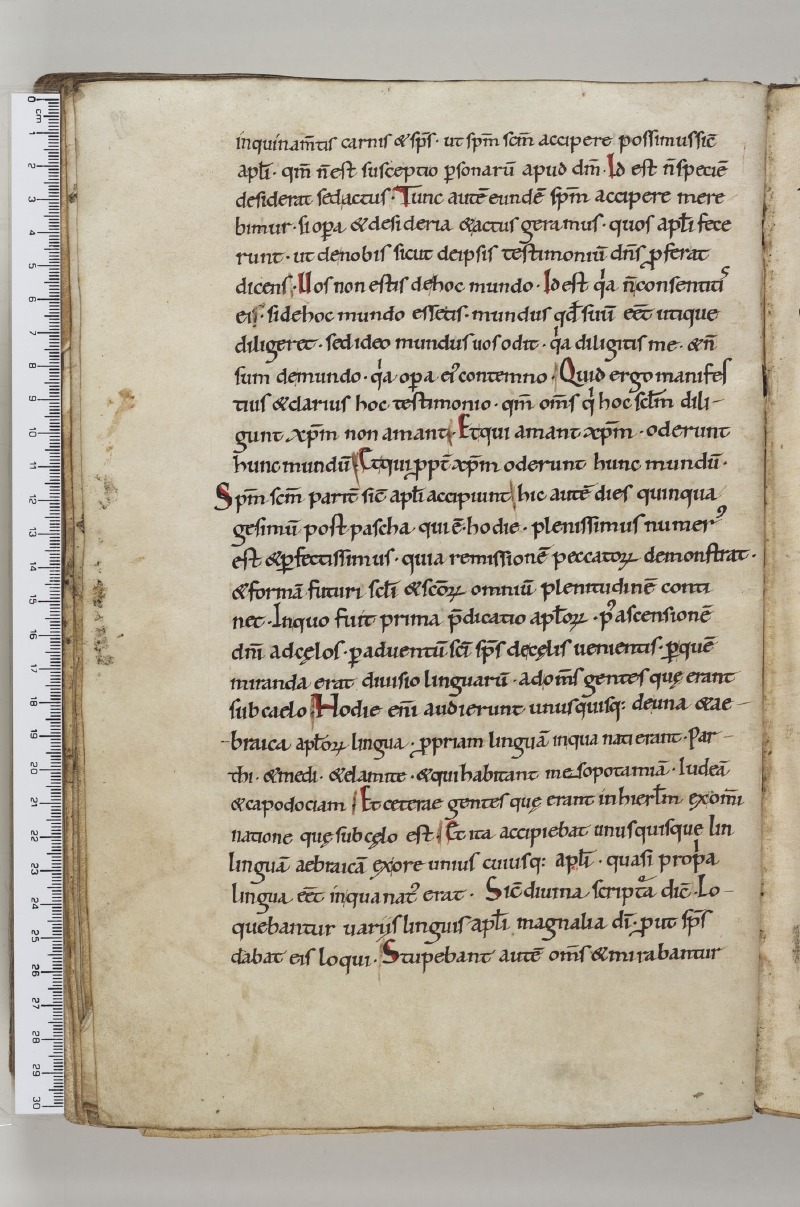 inquinam̄tis carnis & sp̄s · ut sp̄m sc̄m accipere possimus sic̄
apl̄i · qm̄ n̄ est susceptio p̱sonarū apud dm̄ · Id est n̄ speciē
desiderat sed actus · Tunc autē eundē sp̄m accipere mere
bimur · si op̱a & desideria & actus geramus · quos apl̄i fece
runt · ut de nobis sicut de ipsis testimoniū dn̄s ꝓferat
dicens · Uos non estis de hoc mundo · Id est q̍a n̄ consentitꝰ
eis · si de hoc mundo essetis · mundus qd̄ suū eēt utique
diligeret · sed ideo mundus uos odit · q̍a diligitis me · & n̄
sum de mundo · q̍a op̱a eiꝰ contemno · Quid ergo manifes
tius & clarius hoc testimonio · qm̄ om̄s q̍ hoc scl̄m dili-
gunt xp̄m non amant · Et qui amant xp̄m · oderunt
hunc mundū Et qui ꝓpt̄ xp̄m oderunt hunc mundū ·
Spm̄ sc̄m parit̄ sic̄ apl̄i accipiunt hic autē dies quinqua
gesimū post pascha qui ē · hodie · plenissimus numerꝰ
est & p̱fectissimus · quia remissionē peccatoꝝ demonstrat ·
& formā futuri scl̄i & scōꝝ omniū plenitudinē conti
net · In quo fuit prima p̄dicatio apl̄oꝝ · pꝰ ascensionē
dn̄i ad cęlos · p̱ aduentū sc̄i sp̄s de cęlis uenientis · p̱ quē
miranda erat diuisio linguarū · ad om̄s gentes quę erant
sub caelo Hodie eni̅ audierunt unusquisq: de una & ae-
-braica apl̄oꝝ lingua · ꝓpriam linguā in qua nati erant · Par-
thi · & medi · & elamite · & qui habitant mesopotamiā · Iudeā
& capodociam Et ceterae gentes quę erant in hierl̄m ex om̄i
natione quę sub cęlo est · Et ita accipiebat unusquisque lin
linguā aebraicā ex ore unius cuiusq: apl̄i · quasi prop̍a
lingua eēt in qua natꝰ erat · Sic̄ diuina scriptᵃa dic̄ · Lo-
quebantur uarijs linguis apl̄i magnalia dī · ꝓut sp̄s
dabat eis loqui · Stupebant autē om̄s & mirabantur